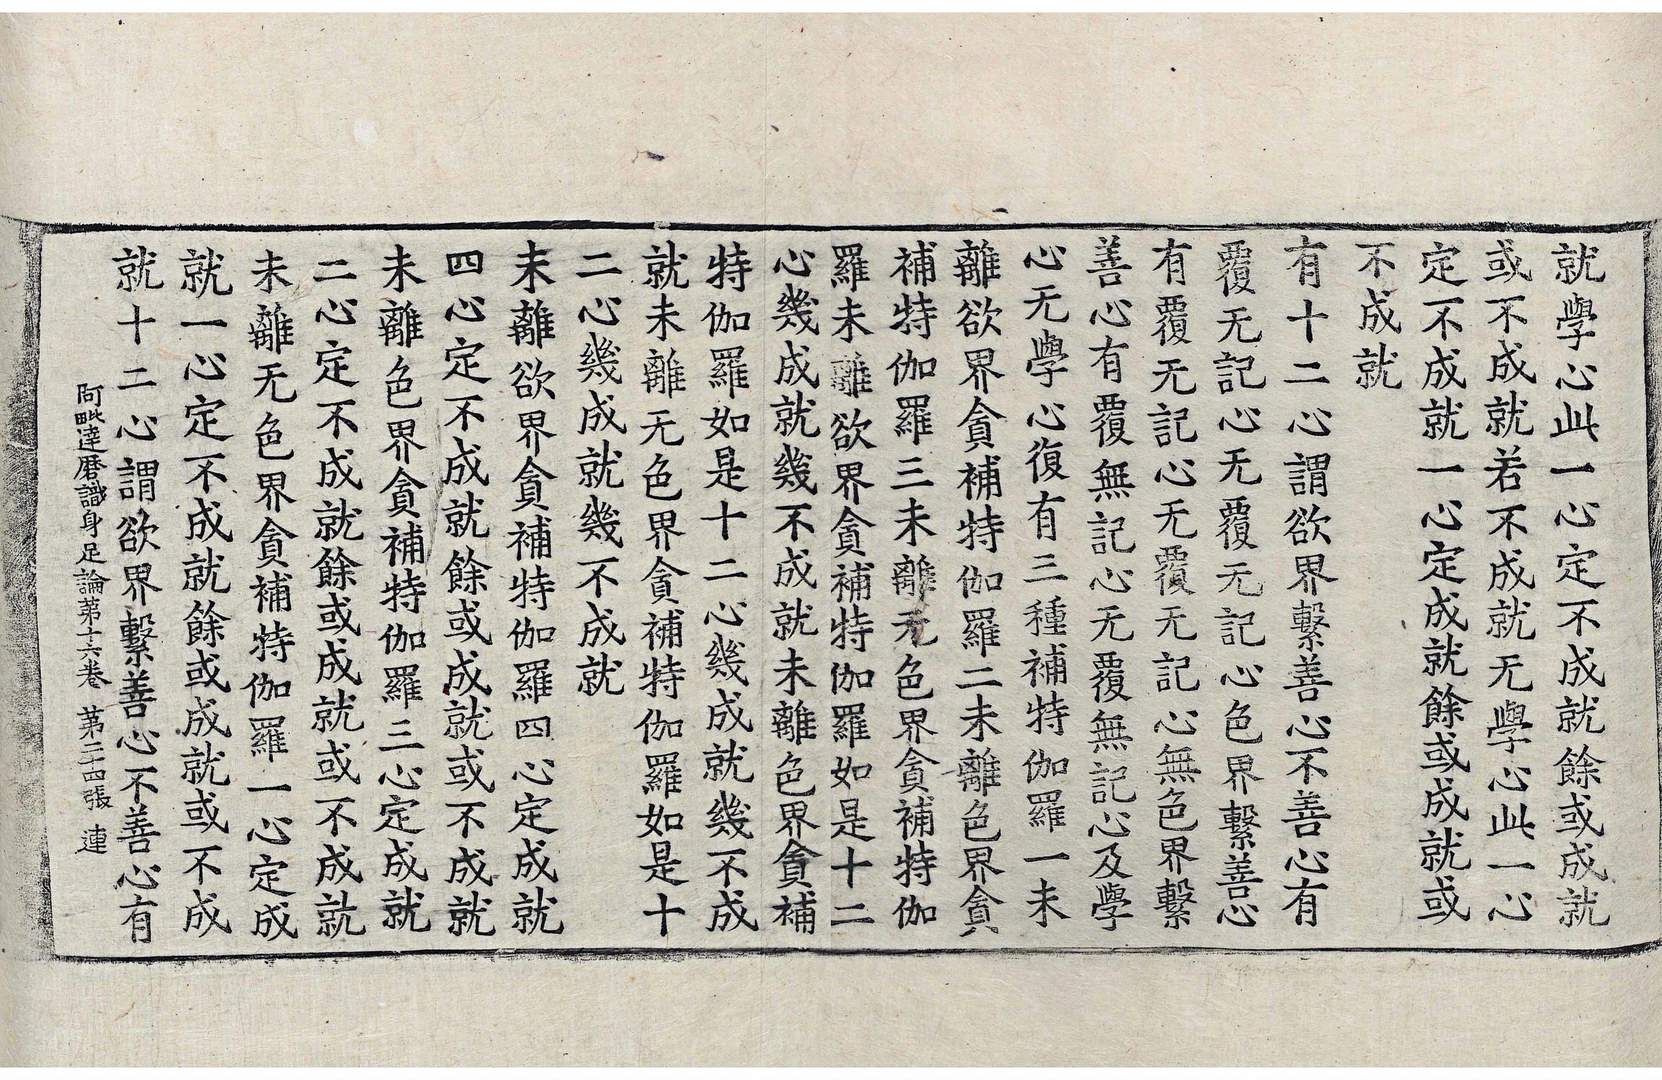 就學心此一心定不成就餘或成就
或不成就若不成就无學心此一心
定不成就一心定成就餘或成就或
不成就
有十二心謂欲界繫善心不善心有
覆无記心无覆无記心色界繫善心
有覆无記心无覆无記心無色界繫
善心有覆無記心无覆無記心及學
心无學心復有三種補特伽羅一未
離欲界貪補特伽羅二未離色界貪
補特伽羅三未離无色界貪補特伽
羅未離欲界貪補特伽羅如是十二
心幾成就幾不成就未離色界貪補
特伽羅如是十二心幾成就幾不成
就未離无色界貪補特伽羅如是十
二心幾成就幾不成就
未離欲界貪補特伽羅四心定成就
四心定不成就餘或成就或不成就
未離色界貪補特伽羅三心定成就
二心定不成就餘或成就或不成就
未離无色界貪補特伽羅一心定成
就一心定不成就餘或成就或不成
就十二心謂欲界繫善心不善心有
阿毗達磨識身足論第十六卷 第二十四張 連